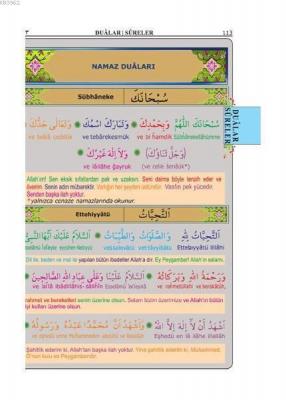 DUÂLAR | SÛRELER 113
DUÂLAR
SÛRELER
NAMAZ DUÂLARI
Sübhâneke سُبْحَانَكَ
سُبْحَانَكَ اللّٰهُمَّ وَبِحَمْدِكَ وَتَبَارَكَ اسْمُكَ وَتَعَالٰى جَدُّكَ
Sübhânekellâhümme ve bi hamdik ve tebârekesmük ve teâlâ ceddük
(وَجَلَّ ثَنَاؤُكَ) وَلَا اِلٰهَ غَيْرُكَ
(ve celle senâük*) ve lâ ilâhe ğayruk
Allah'ım! Sen eksik sıfatlardan pak ve uzaksın. Seni daima böyle tenzih eder ve
överim. Senin adın mübarektir. Varlığın her şeyden üstündür.
Senden başka ilah yoktur.
* yalnızca cenaze namazlarında okunur.
Ettehiyyâtü اَلتَّحِيَّاتُ
اَلتَّحِيَّاتُ لِلّٰهِ وَالصَّلَوَاتُ وَالطَّيِّبَاتُ اَلسَّلَامُ عَلَيْكَ اَيُّهَا النَّبِيُّ
Ettehiyyâtü lillâhi vessalevâtü vettayyibâtü
Dil ile, beden ve mal ile yapılan bütün ibadetler Allah'a dir. Ey Peygamber! Allah'ın selamı,
وَرَحْمَةُ اللّٰهِ وَبَرَكَاتُهُ اَلسَّلَامُ عَلَيْنَا وَعَلٰى عِبَادِ اللّٰهِ الصَّالِحِينَ
ve rahmetullâhi ve berakâtüh Esselâmü aleynâ ve alâ ibâdillâhis-sâlihîn
rahmet ve bereketleri senin üzerine olsun. Selam bizim üzerimize ve Allah'ın bütün
iyi kulları üzerine olsun.
اَشْهَدُ اَنْ لَا اِلٰهَ اِلَّا اللّٰهُ وَاَشْهَدُ اَنَّ مُحَمَّدًا عَبْدُهُ وَرَسُولُهُ
Şahitlik ederim ki, Allah'tan başka ilah yoktur. Yine şahitlik ederim ki, Muhammed,
O'nun kulu ve Peygamberidir.